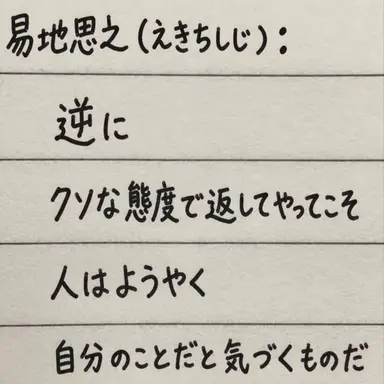 易地思之(えきちしじ):
逆に
クソな態度で返してやってこそ
人はようやく
自分のことだと気づくものだ